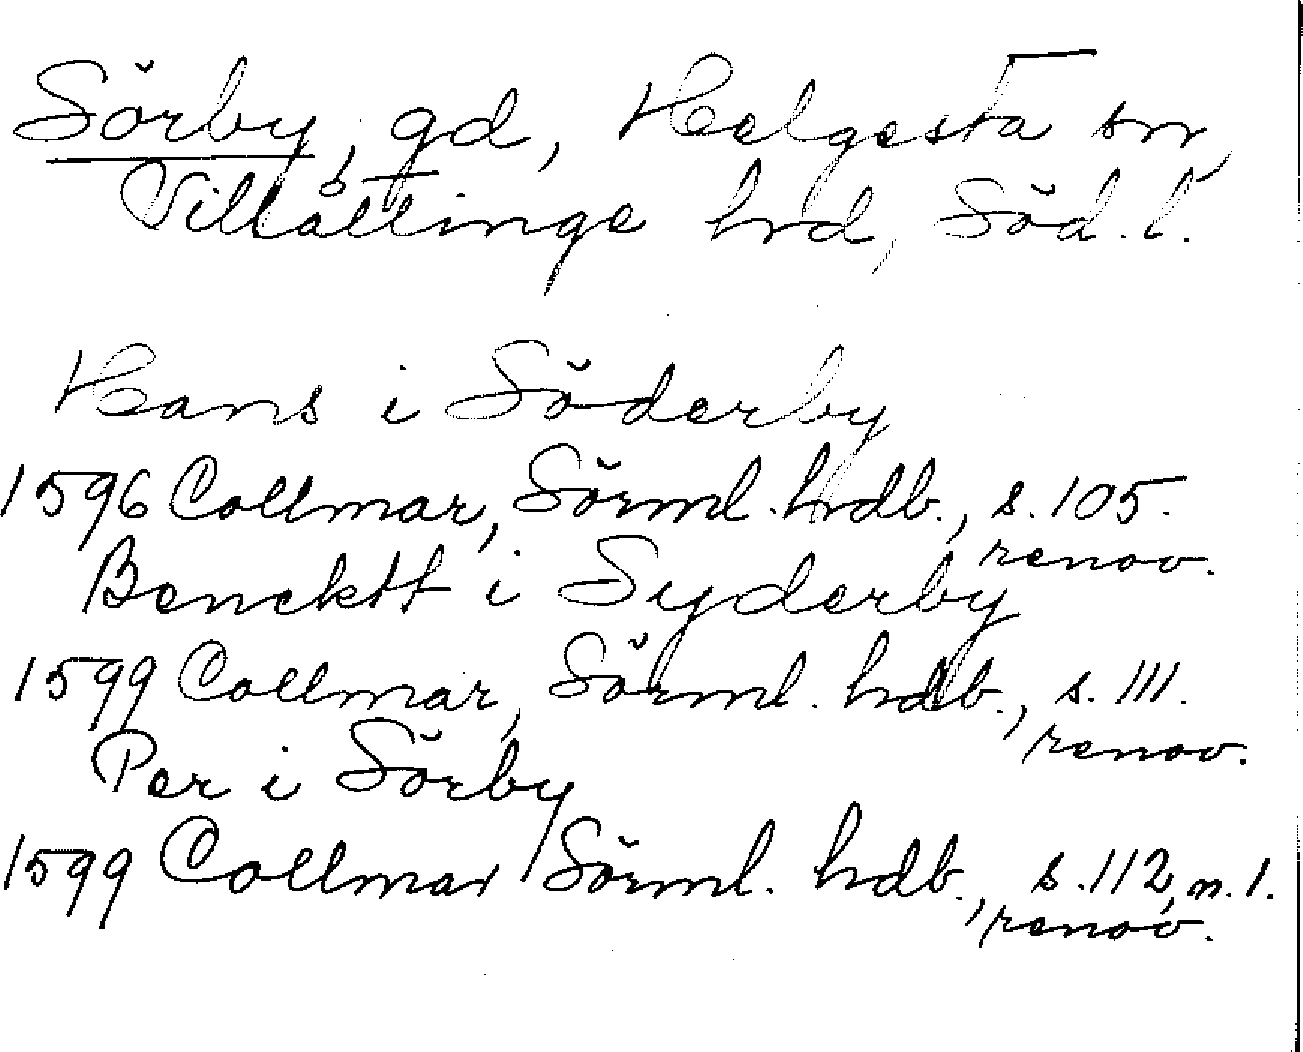 Sörby, gd, Helgesta sn,
Villåttinge hrd, Söd. l.
Hans i Söderby
1596 Collmar, Sörml. hrdb., s. 105.
renov.
Benecktt i Syderby
1599 Collmar, Sörml. hdb., s. 111.
renov.
Per i Sörby
1599 Collmar Sörml. hdb., s. 112, n. 1.
renov.